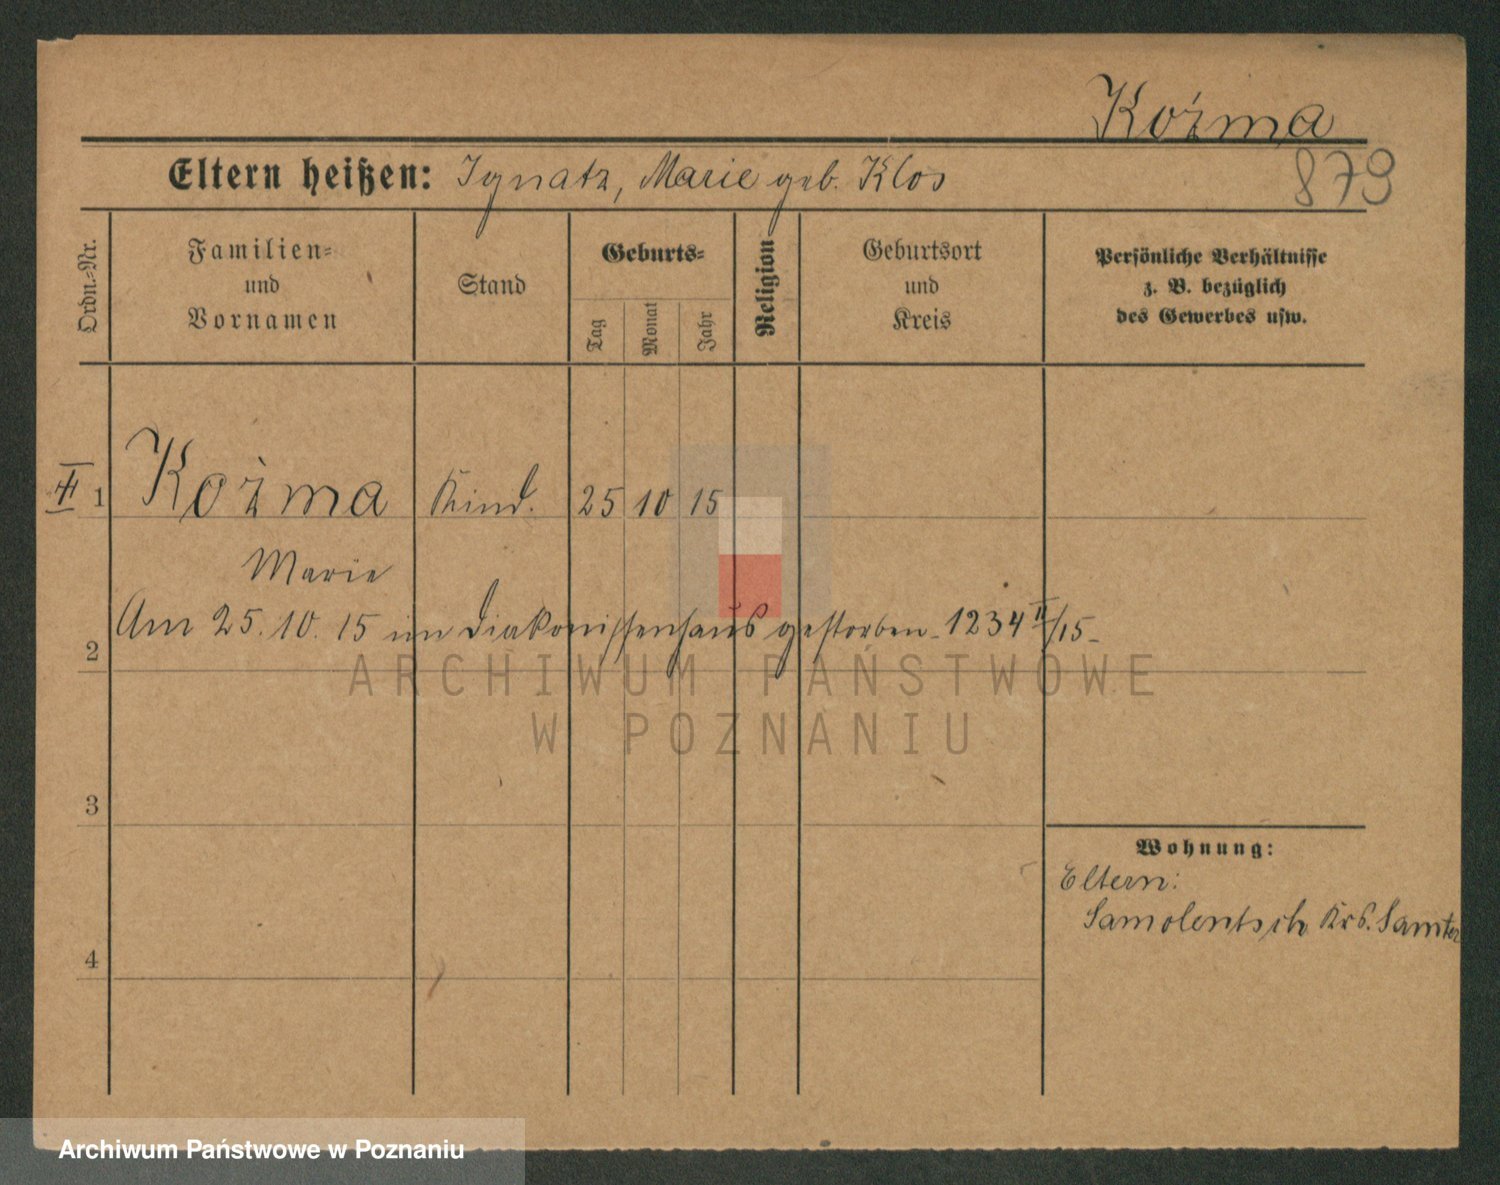 Koźma
Eltern heißen: Ignatz, Marie geb. Klos
879
Ordn.-Nr.
Familien-
und
Vornamen
Stand
Geburts-
Tag
Monat
Jahr
Religion
Geburtsort
und
Kreis
Persönliche Verhältnisse
z. B. bezüglich
des Gewerbes usw.
II 1 Koźma Kind. 25 10 15
Marie
Am 25. 10. 15 im Diakonissenhaus gestorben - 1234 II/15 -
2
ARCHIWUM PAŃSTWOWE
W POZNANIU
3
Wohnung:
Eltern:
Samolentsch Krs. Samter
4
Archiwum Państwowe w Poznaniu